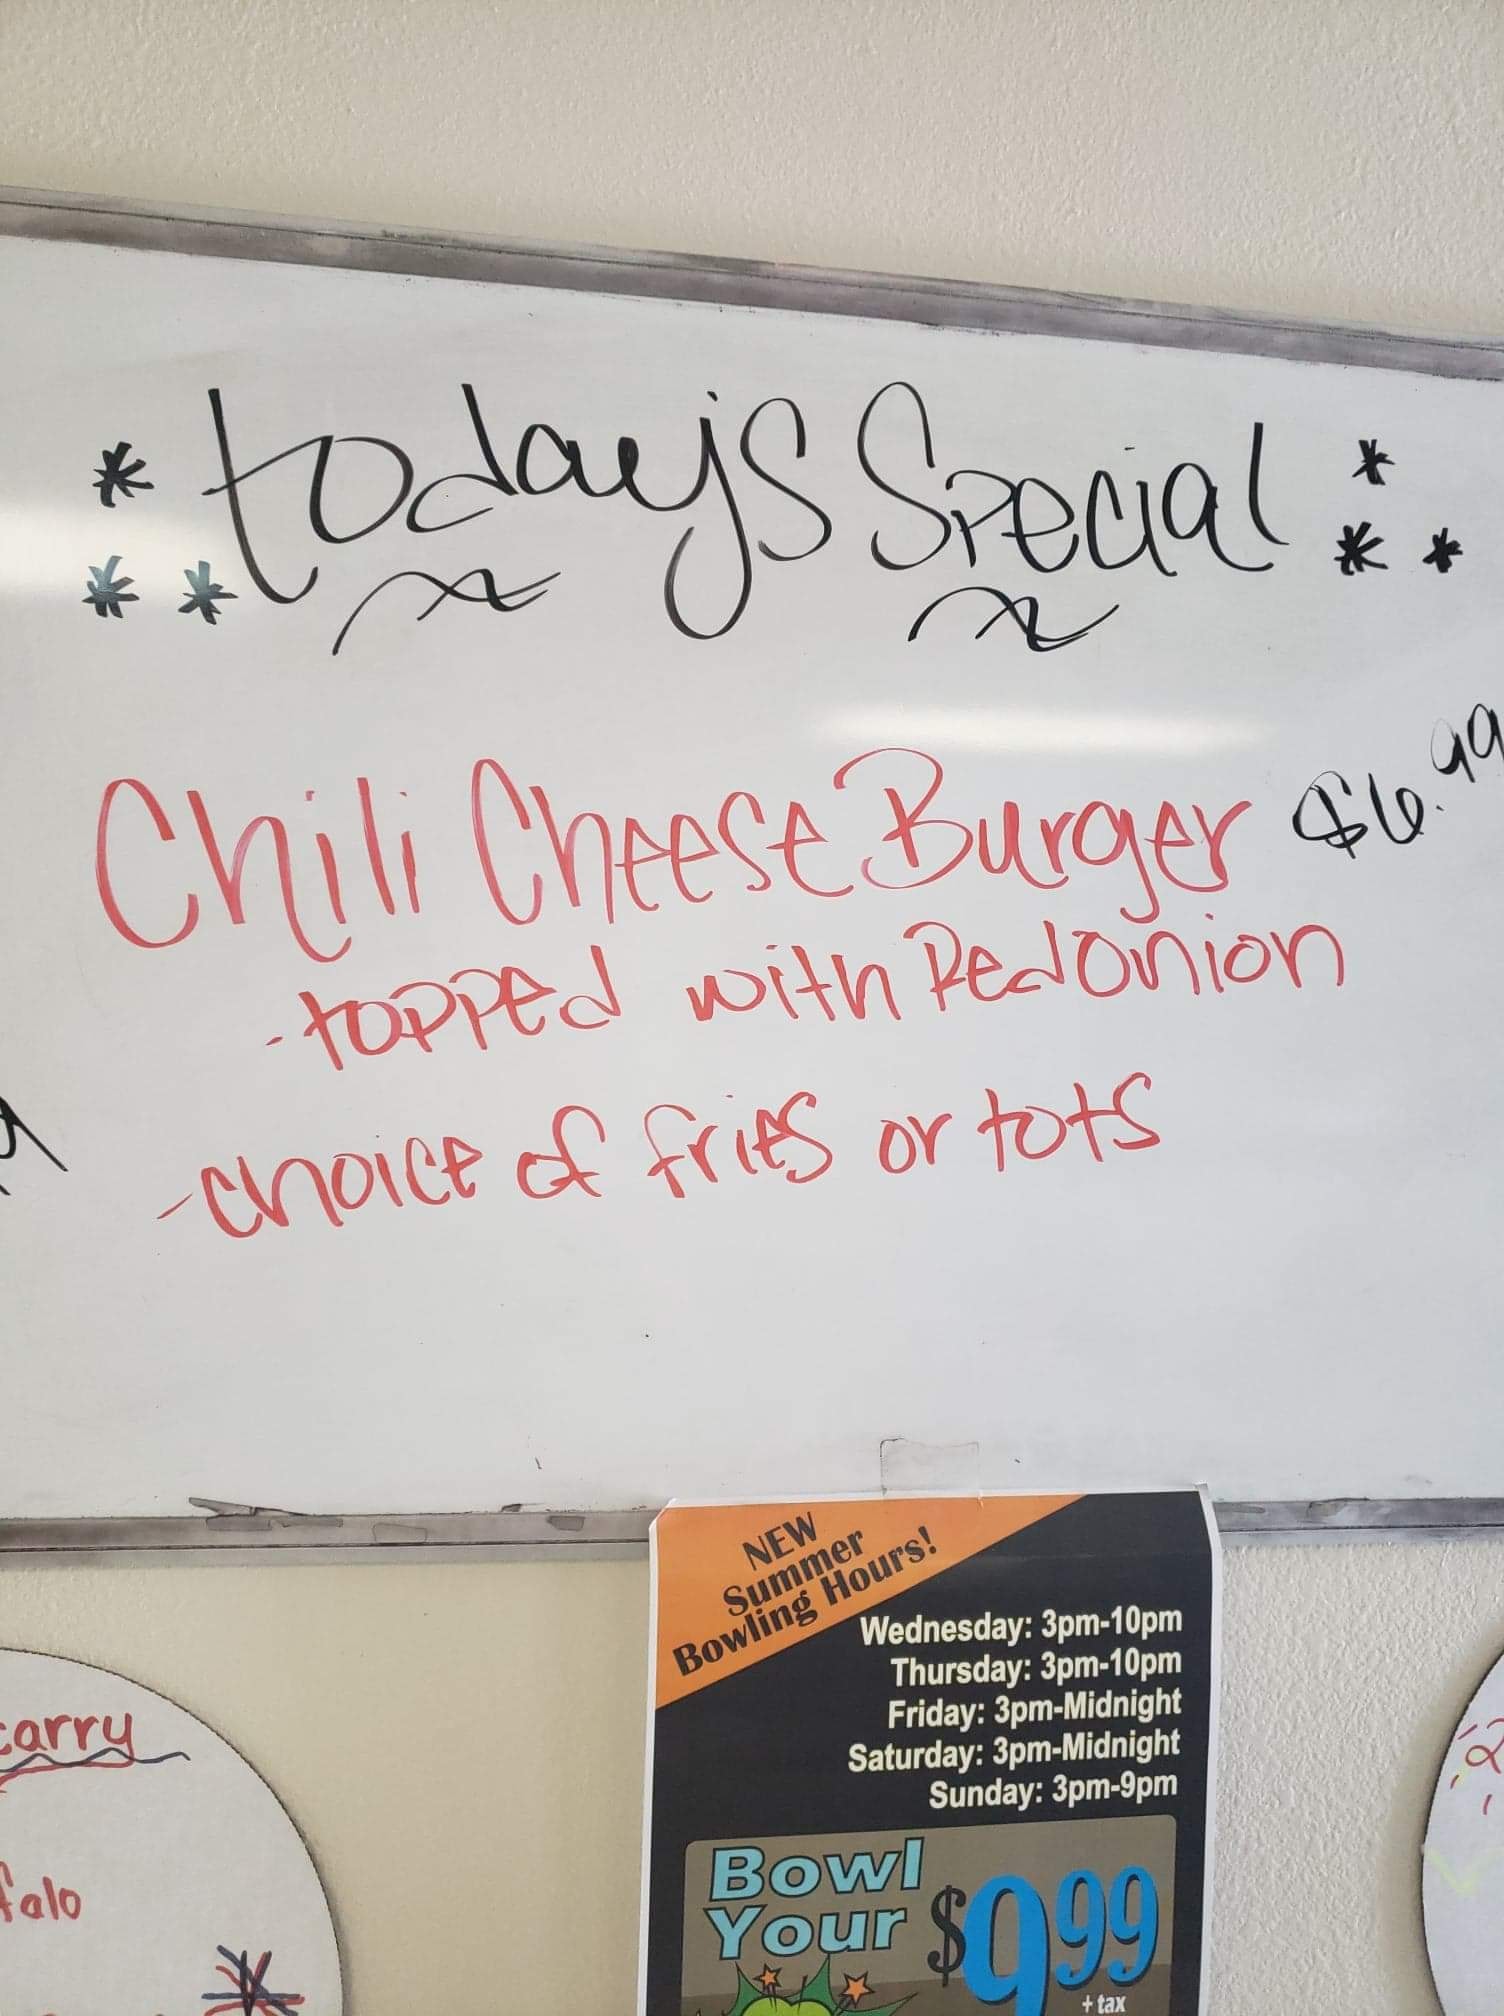 * today's Special *
* * * *
Chili Cheese Burger $6.99
- topped with Red Onion
- choice of fries or tots
NEW
Summer
Bowling Hours!
Wednesday: 3pm-10pm
Thursday: 3pm-10pm
Friday: 3pm-Midnight
Saturday: 3pm-Midnight
Sunday: 3pm-9pm
Bowl
Your
$9.99
+ tax
carry
falo